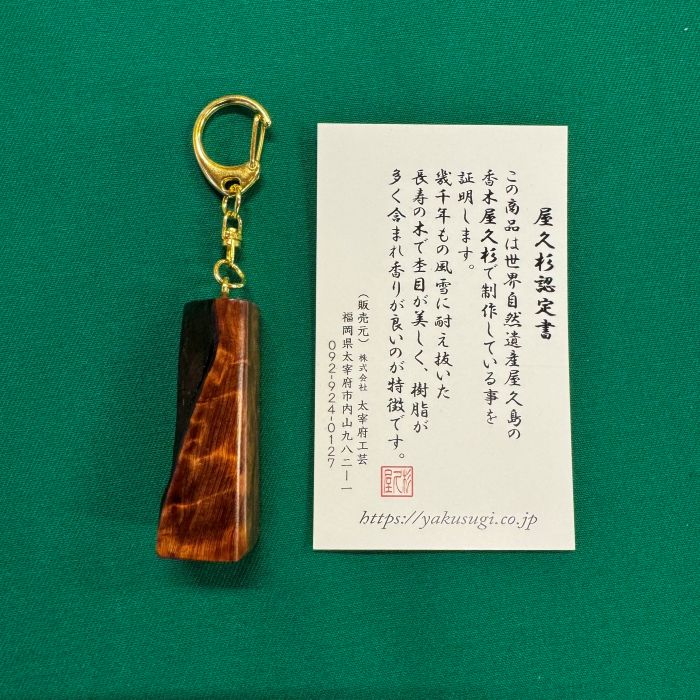 屋久杉認定書
この商品は世界自然遺産屋久島の
香木屋久杉で制作している事を
証明します。
幾千年もの風雪に耐え抜いた
長寿の木で杢目が美しく、樹脂が
多く含まれ香りが良いのが特徴です。
(販売元) 株式会社 太宰府工芸
福岡県太宰府市内山九八二ー一
092-924-0127
屋久杉
https://yakusugi.co.jp